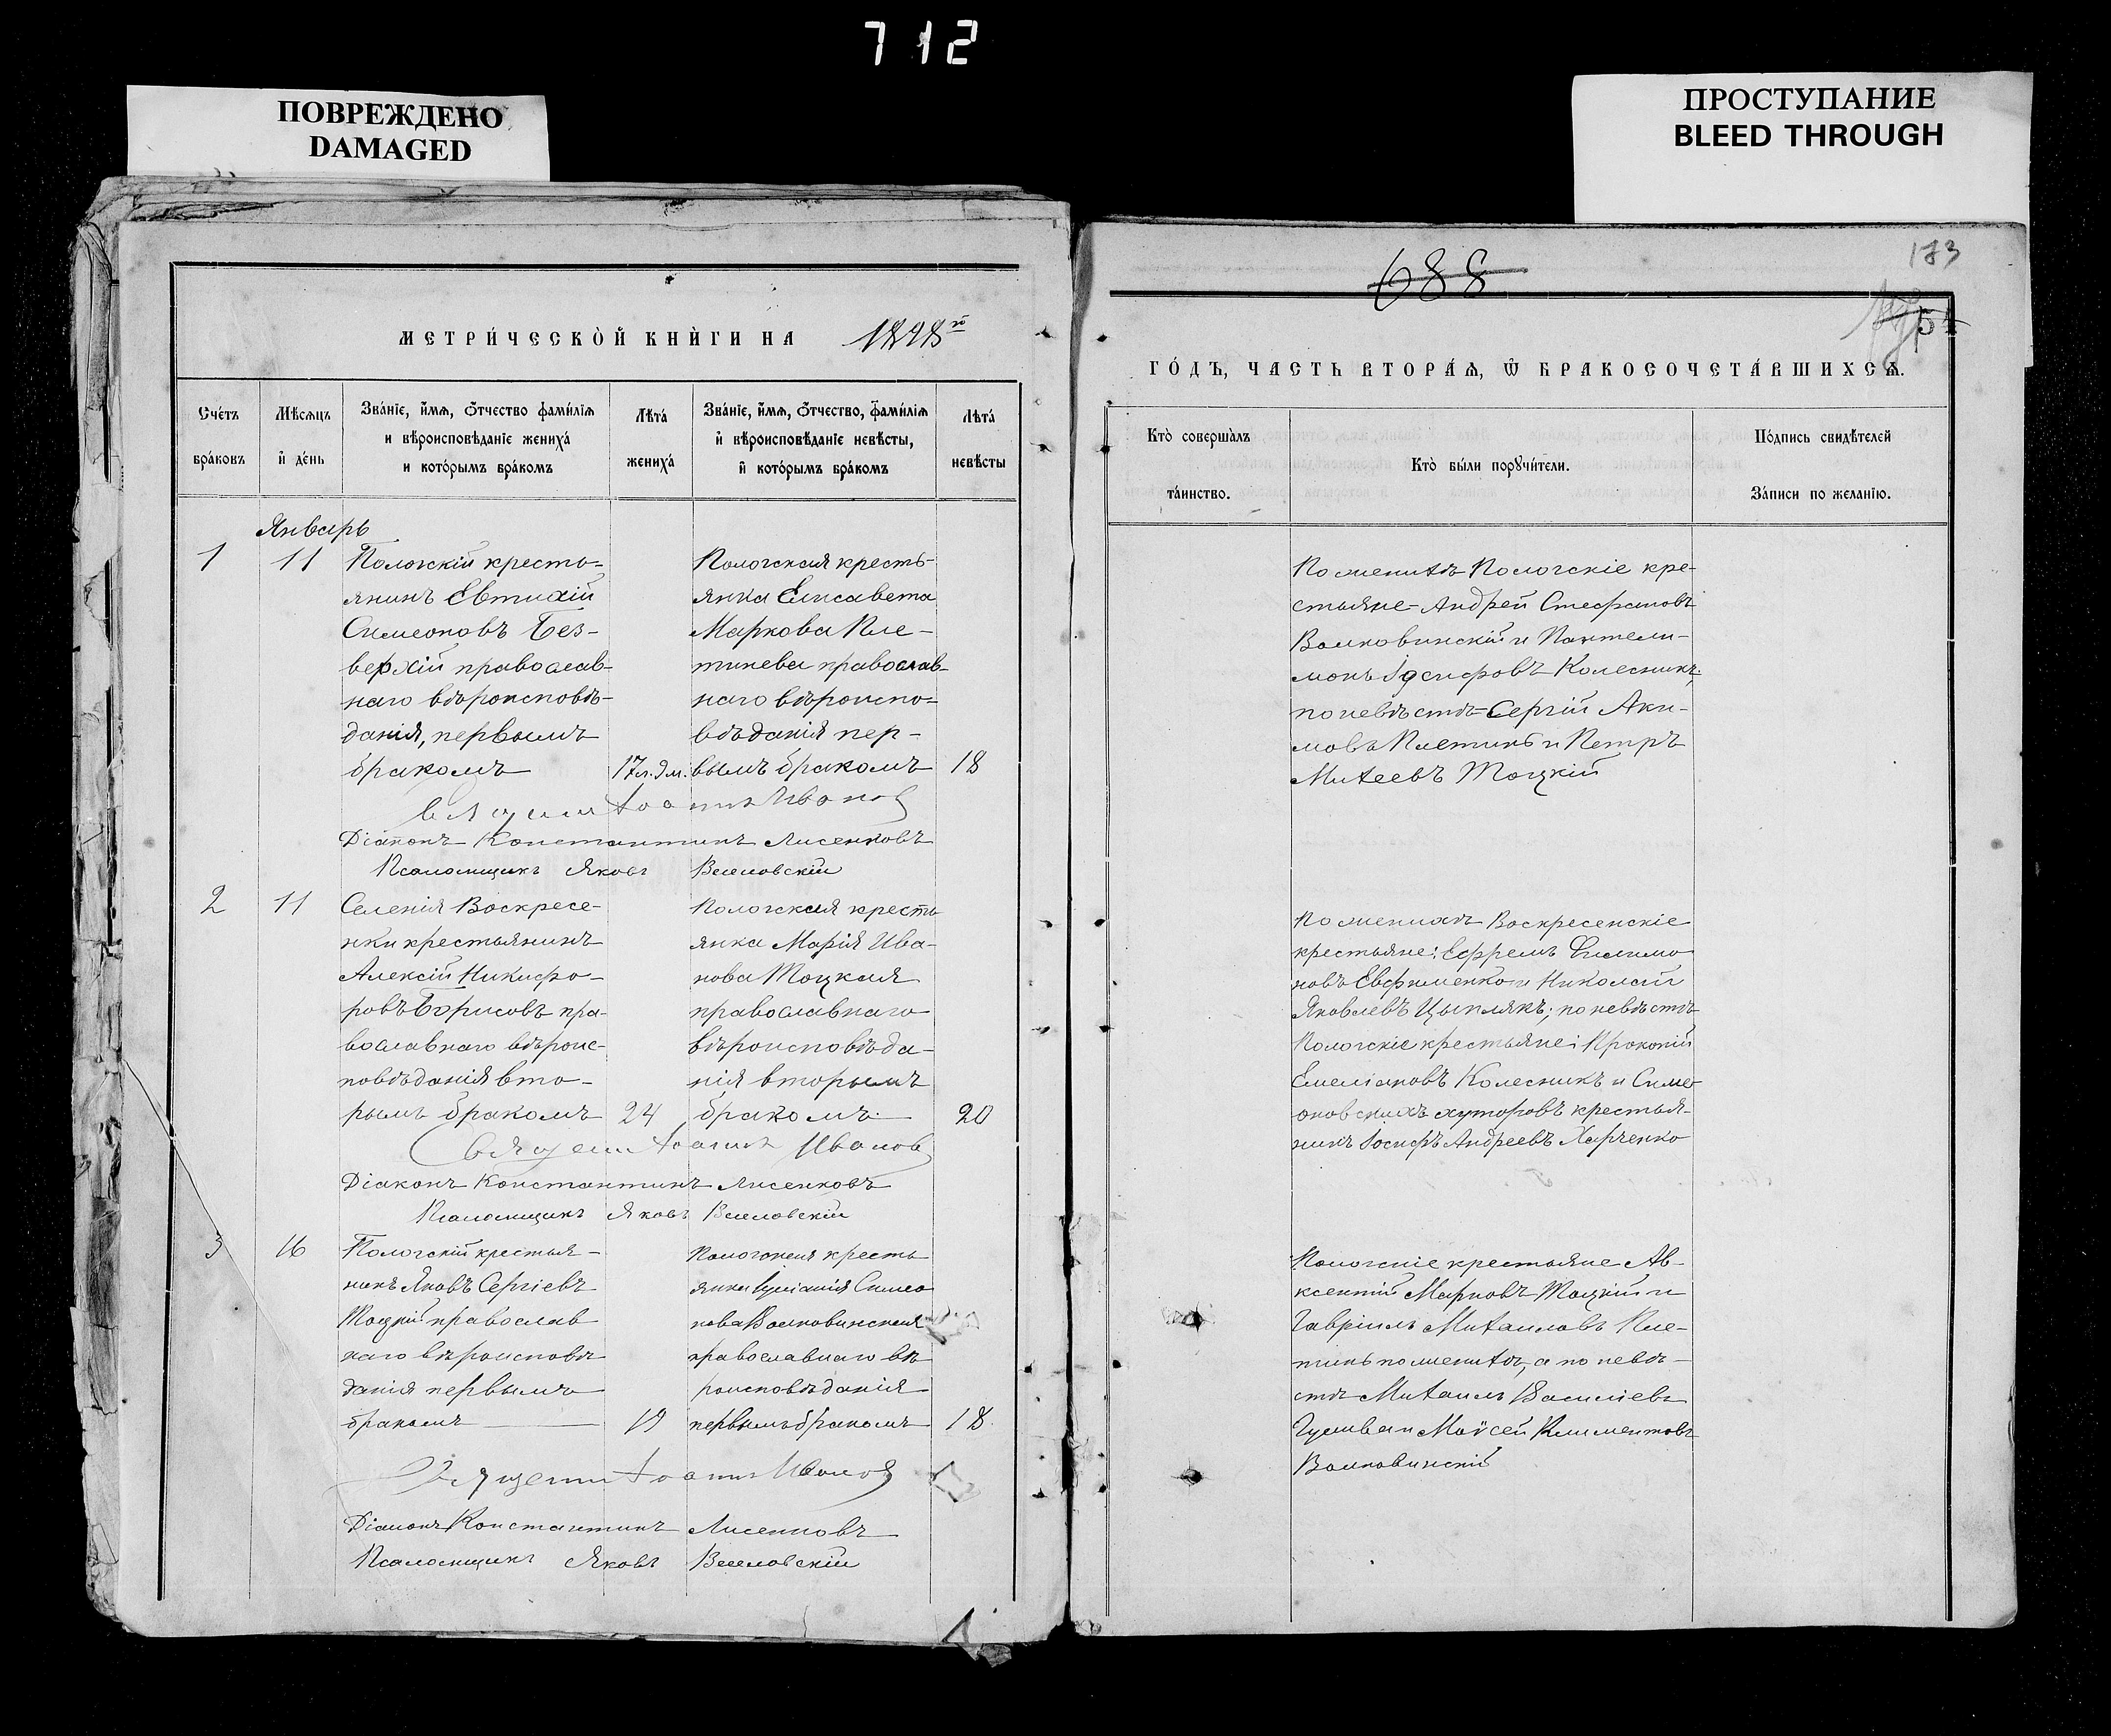 712
ПОВРЕЖДЕНО
DAMAGED
ПРОСТУПАНИЕ
BLEED THROUGH
МЕТРИ́ЧЕСКОЙ КНИ́ГИ НА 1898 го
Счéтъ бра́ковъ
Мѣ́сяцъ и҆ де́нь
Зва́нїе, и҆́мѧ, ѻ҆́тчество фами́лїѧ
и вѣроисповѣ́данїе жениха́
и кото́рымъ бра́комъ
Лѣта́ жениха́
Зва́нїе, и҆́мѧ, ѻ҆́тчество, фами́лїѧ
и҆ вѣроисповѣ́данїе невѣ́сты,
и҆ кото́рымъ бра́комъ
Лѣта́ невѣ́сты
Январь
1
11
Пологскій кресть=
янинъ Евтихій
Симеоновъ Без-
верхій православ-
наго вѣроисповѣ-
данія, первымъ
бракомъ
17 л. 9 м.
Пологская кресть-
янка Елисавета
Маркова Пле-
тинева православ-
наго вѣроиспо=
вѣданія пер-
вымъ бракомъ
18
Священ Іоаннъ Иванов
Діаконъ Константинъ Лисенковъ
Псаломщикъ Яковъ Веселовскій
2
11
Селенія Воскресе-
нки крестьянинъ
Алексій Никифо-
ровъ Борисовъ пра-
вославнаго вѣроис-
повѣданія вто-
рымъ бракомъ
24
Пологская кресть
янка Марія Ива-
нова Тоцкая
православнаго
вѣроисповѣда-
нія вторымъ
бракомъ
20
Священ Іоаннъ Иванов
Діаконъ Константинъ Лисенковъ
Псаломщикъ Яковъ Веселовскій
3
16
Пологскій крестья-
нинъ Яковъ Сергіевъ
Тоцкій православ
наго вѣроисповѣ
данія первымъ
бракомъ
19
Пологская кресть
янка Іуліанія Симео
нова Волковинская
православнаго вѣ
роисповѣданія
первымъ бракомъ
18
Священ Іоаннъ Иванов
Діаконъ Константинъ Лисенковъ
Псаломщикъ Яковъ Веселовскій
688
173
ГО́ДЪ, ЧАСТЬ ВТОРА́Ѧ, Ѽ БРАКОСОЧЕТА́ВШИХСѦ.
Кто̀ соверша̀лъ та́инство.
Кто̀ бы́ли порꙋчи́тели.
По́дпись свидѣ́телей За́писи по жела́нїю.
По женихѣ Пологскіе кре-
стьяне- Андрей Стефановъ
Волковинскій и Пантели-
монъ Іосифовъ Колесникъ;
по невѣстѣ= Сергій Аки-
мовъ Плетинь и Петръ
Михеевъ Тоцкій
По женихѣ Воскресенскіе
крестьяне: Ефремъ Филимо
новъ Евфименко и Николай
Яковлевъ Цыплякъ; по невѣстѣ
Пологскіе крестьяне: Прокопій
Емеліановъ Колесникъ и Симе
оновскихъ хуторовъ крестья-
нинъ Іосифъ Андреевъ Харченко
Пологскіе крестьяне Ав-
ксентій Марковъ Тоцкій и
Гавріилъ Михаиловъ Пле-
тинь по женихѣ, а по невѣ-
стѣ Михаилъ Василіевъ
Гулива и Моѵсей Климентовъ
Волковинскій